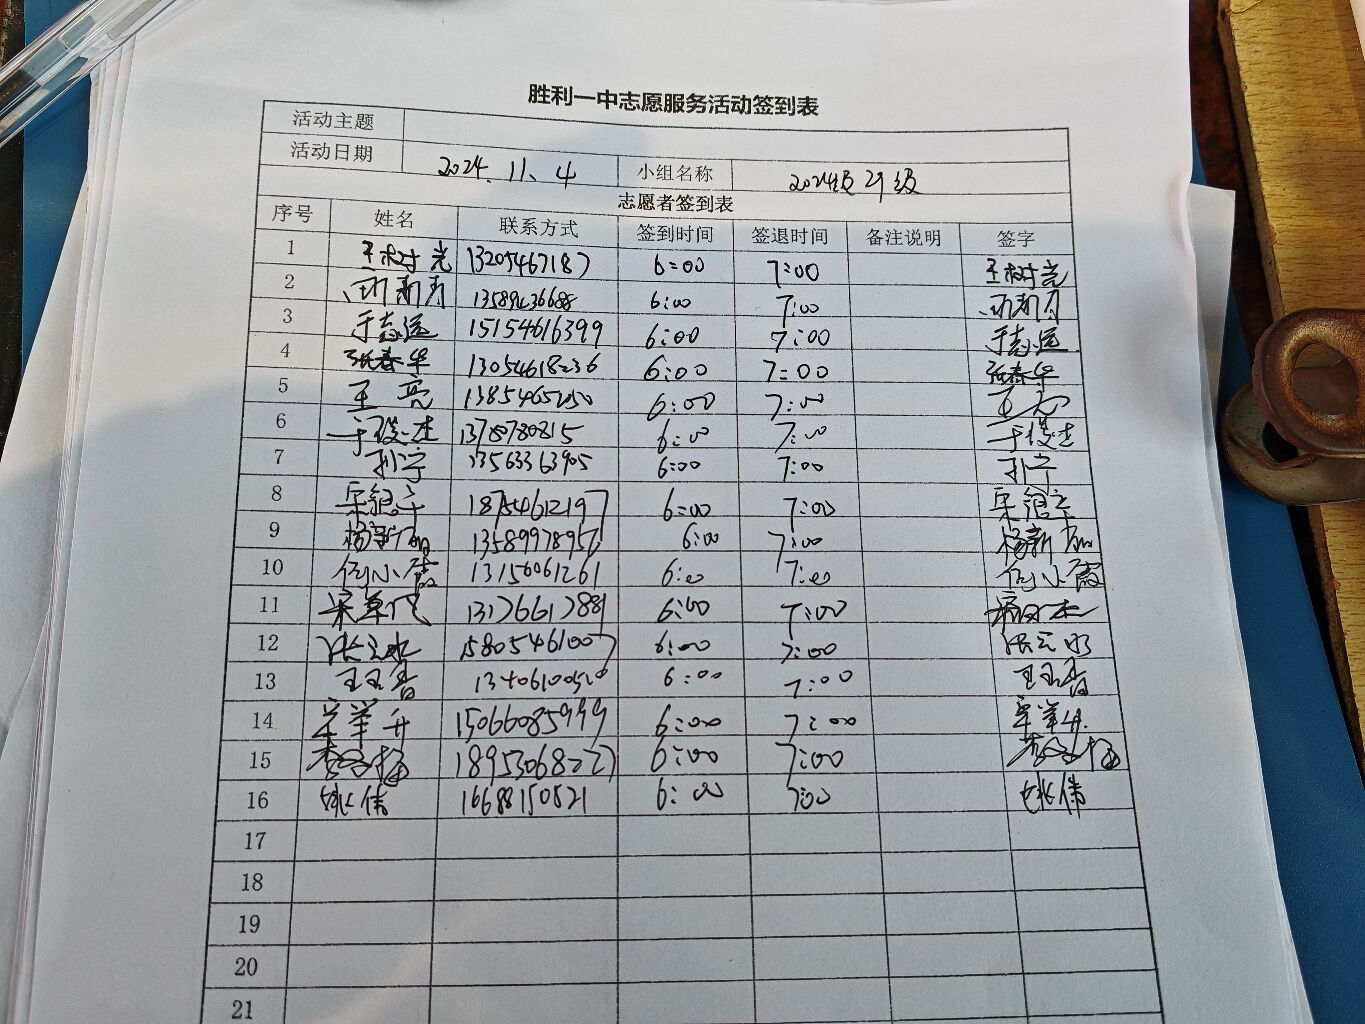 胜利一中志愿服务活动签到表
活动主题
活动日期 2024.11.4 小组名称 2024级
志愿者签到表
序号 姓名 联系方式 签到时间 签退时间 备注说明 签字
1 王树光 13205467187 6:00 7:00 王树光
2 6:00 7:00
3 于志远 15154616399 6:00 7:00 于志远
4 张春华 13054618236 6:00 7:00 张春华
5 王亮 1385465250 6:00 7:00 王亮
6 于俊杰 6:00 7:00 于俊杰
7 孙宁 13563363905 6:00 7:00 孙宁
8 18754612197 6:00 7:00
9 13589978956 6:00 7:00
10 何小霞 13156061261 6:00 7:00 何小霞
11 13176617881 6:00 7:00
12 15805461007 6:00 7:00
13 王玉香 6:00 7:00 王玉香
14 15066085999 6:00 7:00
15 18953068227 6:00 7:00
16 姚伟 16688150521 6:00 7:00 姚伟
17
18
19
20
21